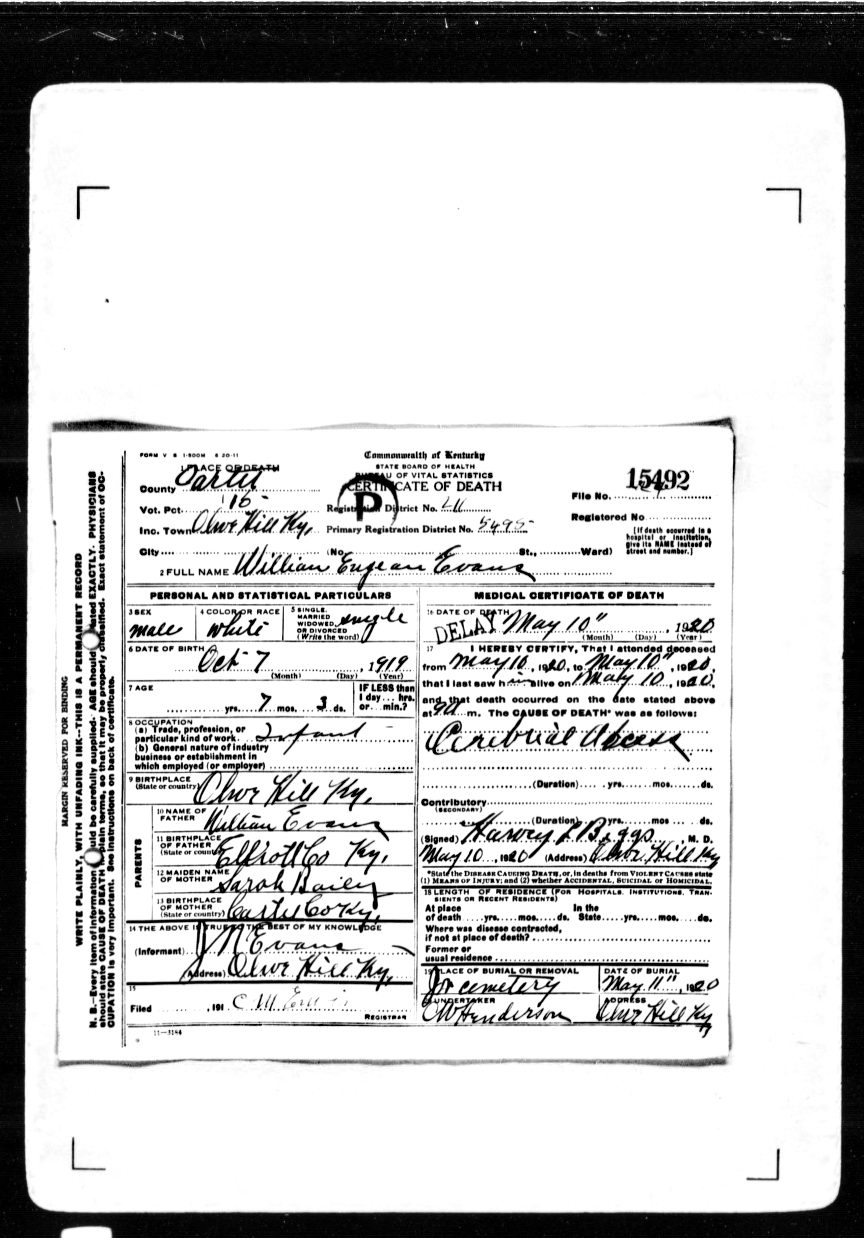 FORM V S 1-500M 6 20-11
Commonwealth of Kentucky
STATE BOARD OF HEALTH
BUREAU OF VITAL STATISTICS
CERTIFICATE OF DEATH
P
15492
File No.
Registered No.
[If death occurred in a hospital or institution, give its NAME instead of street and number.]
1 PLACE OF DEATH
County Carter
Vot. Pct. Registration District No.
Inc. Town Olive Hill Ky, Primary Registration District No. 5495
City (No. St., Ward)
2 FULL NAME William Eugean Evans
PERSONAL AND STATISTICAL PARTICULARS
3 SEX male
4 COLOR OR RACE white
5 SINGLE, MARRIED WIDOWED, OR DIVORCED (Write the word) single
6 DATE OF BIRTH Oct 7, 1919
(Month) (Day) (Year)
7 AGE yrs. 7 mos. 3 ds.
IF LESS than 1 day... hrs. or... min.?
8 OCCUPATION
(a) Trade, profession, or particular kind of work Infant
(b) General nature of industry
business or establishment in
which employed (or employer)
9 BIRTHPLACE
(State or country) Olive Hill Ky.
PARENTS
10 NAME OF FATHER William Evans
11 BIRTHPLACE OF FATHER
(State or country) Elliott Co Ky.
12 MAIDEN NAME OF MOTHER Sarah Bailey
13 BIRTHPLACE OF MOTHER
(State or country) Carter Co Ky,
14 THE ABOVE IS TRUE TO THE BEST OF MY KNOWLEDGE
(Informant) Evans
(Address) Olive Hill Ky,
15
Filed , 191
REGISTRAR
11-3184
MEDICAL CERTIFICATE OF DEATH
16 DATE OF DEATH
DELAY May 10", 1920
(Month) (Day) (Year)
17 I HEREBY CERTIFY, That I attended deceased
from May 10, 1920, to May 10", 1920,
that I last saw him alive on May 10, 1920,
and that death occurred on the date stated above
at m. The CAUSE OF DEATH* was as follows:
Cerebrial Abcess
(Duration) yrs. mos. ds.
Contributory
(SECONDARY)
(Duration) yrs. mos. ds.
(Signed) Harvey L Biggs, M. D.
May 10, 1920 (Address) Olive Hill Ky
*State the DISEASE CAUSING DEATH, or, in deaths from VIOLENT CAUSES state
(1) MEANS OF INJURY; and (2) whether ACCIDENTAL, SUICIDAL or HOMICIDAL.
18 LENGTH OF RESIDENCE (FOR HOSPITALS, INSTITUTIONS, TRANSIENTS OR RECENT RESIDENTS)
At place of death yrs. mos. ds. In the State yrs. mos. ds.
Where was disease contracted,
if not at place of death?
Former or
usual residence
19 PLACE OF BURIAL OR REMOVAL
cemetery
DATE OF BURIAL
May 11", 1920
20 UNDERTAKER
Henderson
ADDRESS
Olive Hill Ky
MARGIN RESERVED FOR BINDING
WRITE PLAINLY, WITH UNFADING INK--THIS IS A PERMANENT RECORD
N. B.--Every item of information should be carefully supplied. AGE should be stated EXACTLY. PHYSICIANS
should state CAUSE OF DEATH in plain terms, so that it may be properly classified. Exact statement of OC-
CUPATION is very important. See instructions on back of certificate.